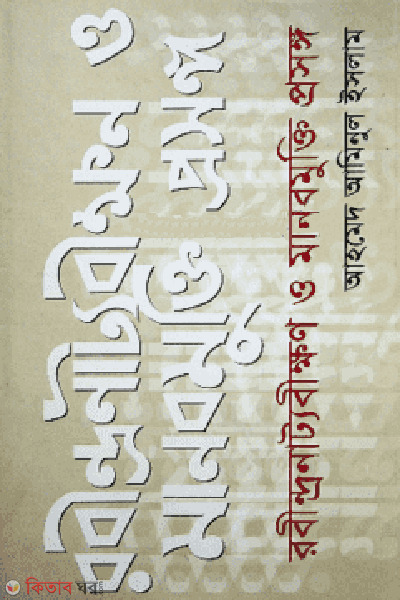 রবীন্দ্রনাট্যবীক্ষন ও
মানবমুক্তি প্রসঙ্গ
রবীন্দ্রনাট্যবীক্ষণ ও মানবমুক্তি প্রসঙ্গ
আহমেদ আমিনুল ইসলাম
কিতাব ঘর